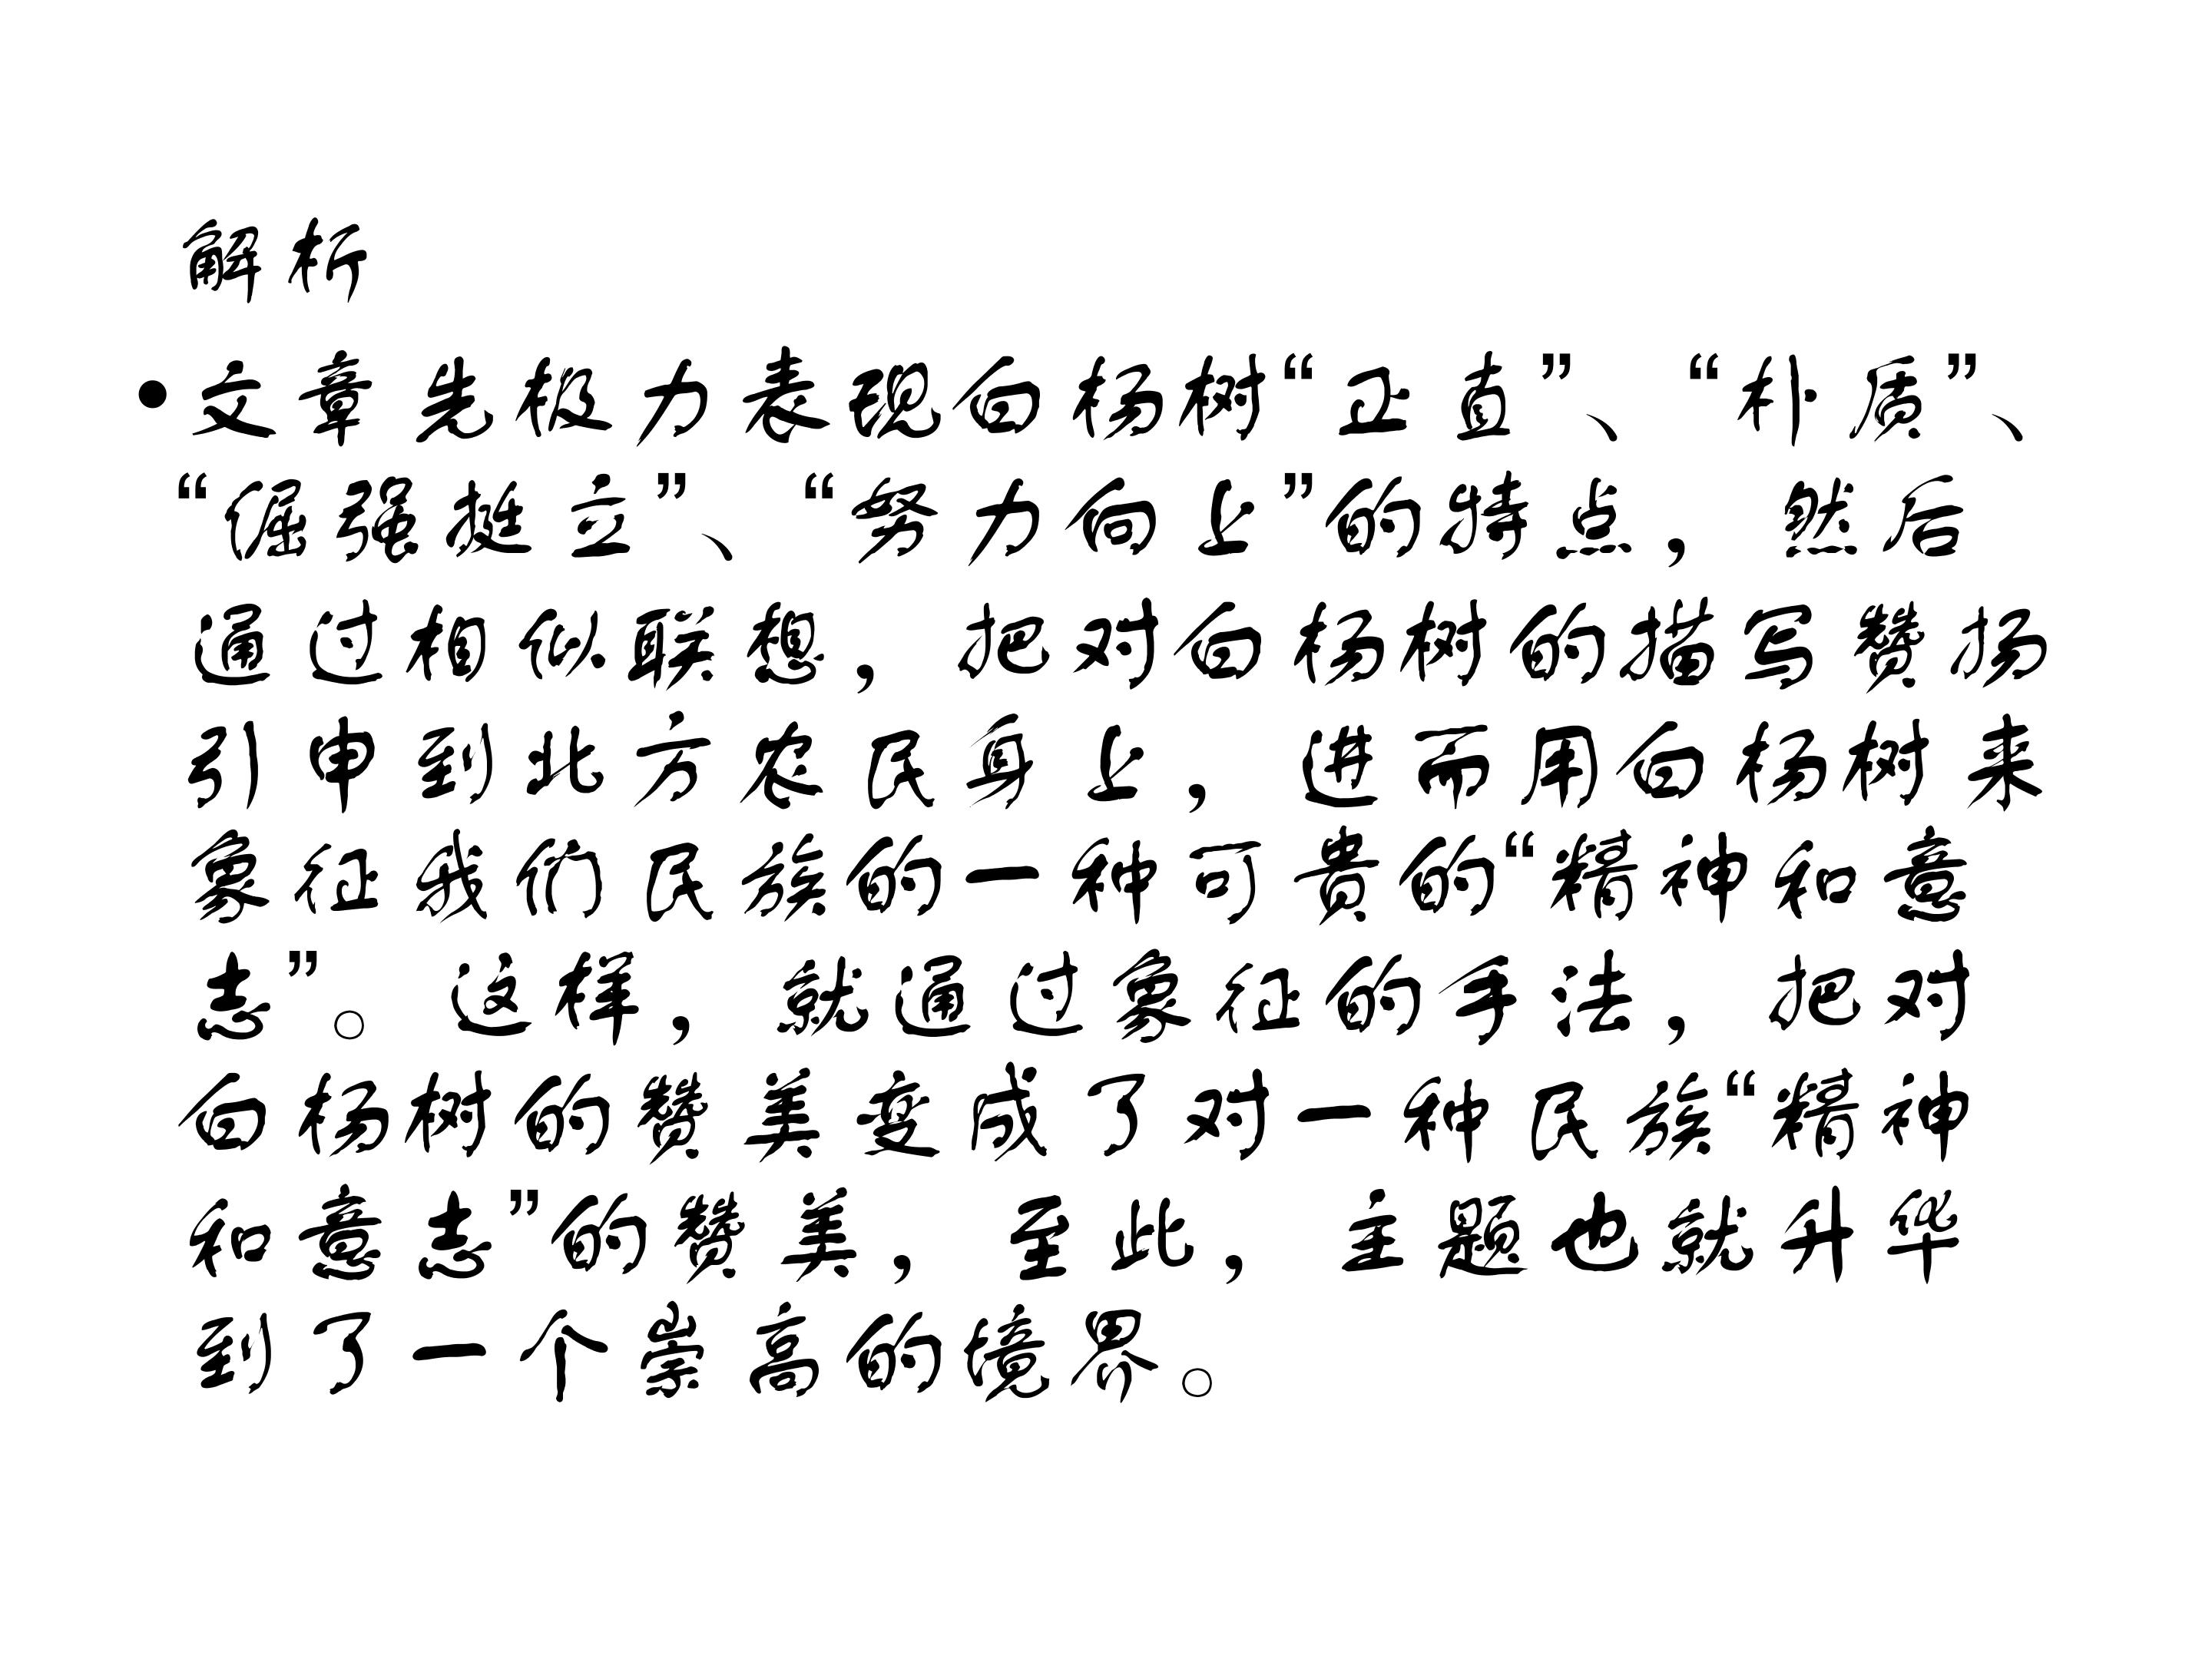 解析
•文章先极力表现白杨树“正直”、“朴质”、
“倔强挺立”、“努力向上”的特点，然后
通过相似联想，把对白杨树的描写赞扬
引申到北方农民身上，进而用白杨树来
象征我们民族的一种可贵的“精神和意
志”。这样，就通过象征的手法，把对
白杨树的赞美变成了对一种民族“精神
和意志”的赞美，至此，主题也就升华
到了一个崇高的境界。